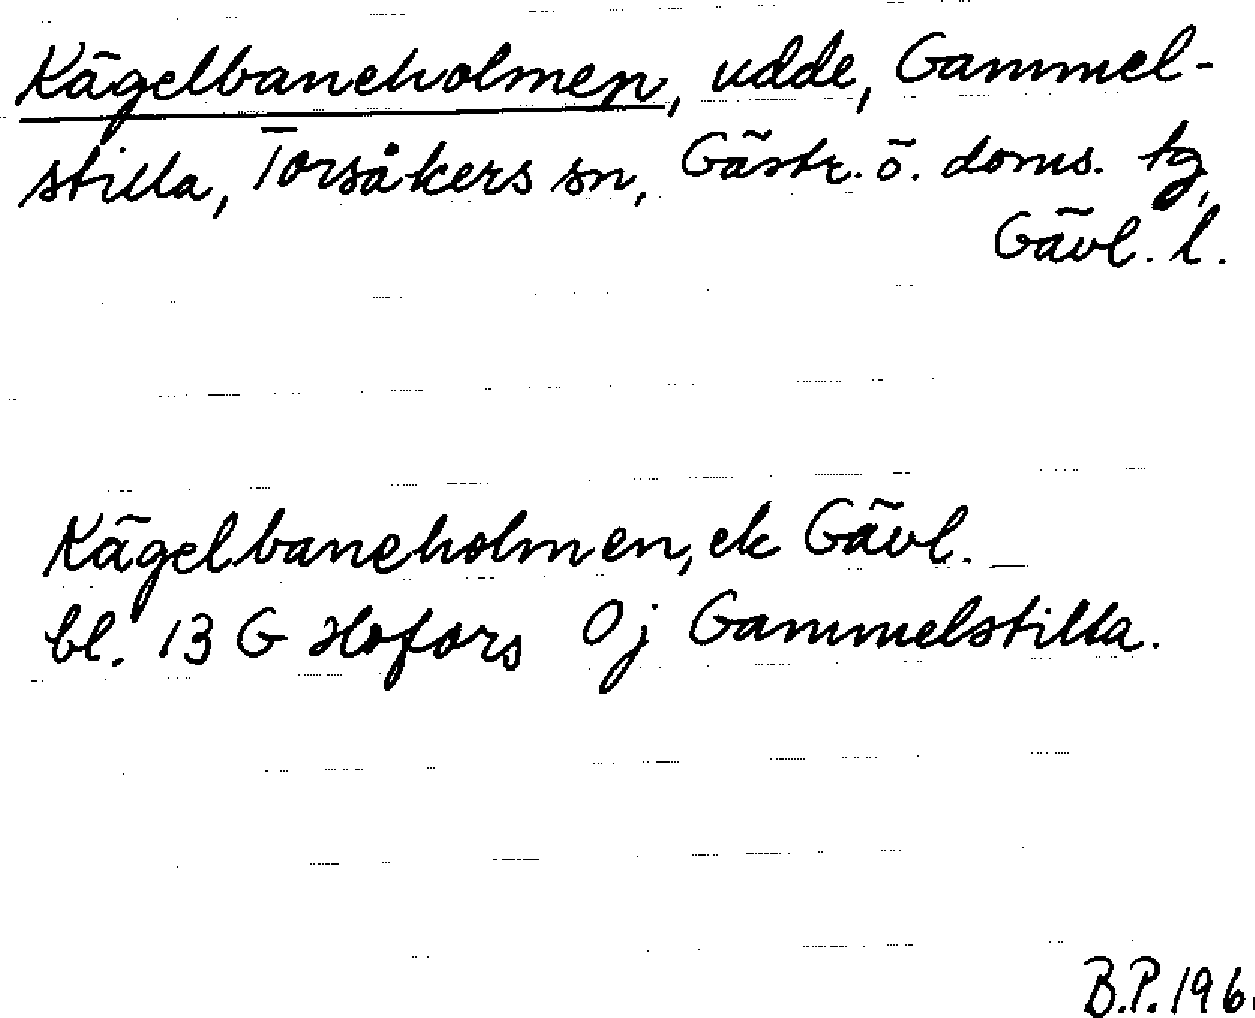 Kägelbaneholmen, udde, Gammel-
stilla, Torsåkers sn, Gästr. ö. doms. tg,
Gävl. l.
Kägelbaneholmen, ek Gävl.
bl. 13 G Hofors 0j Gammelstilla.
B.P. 196